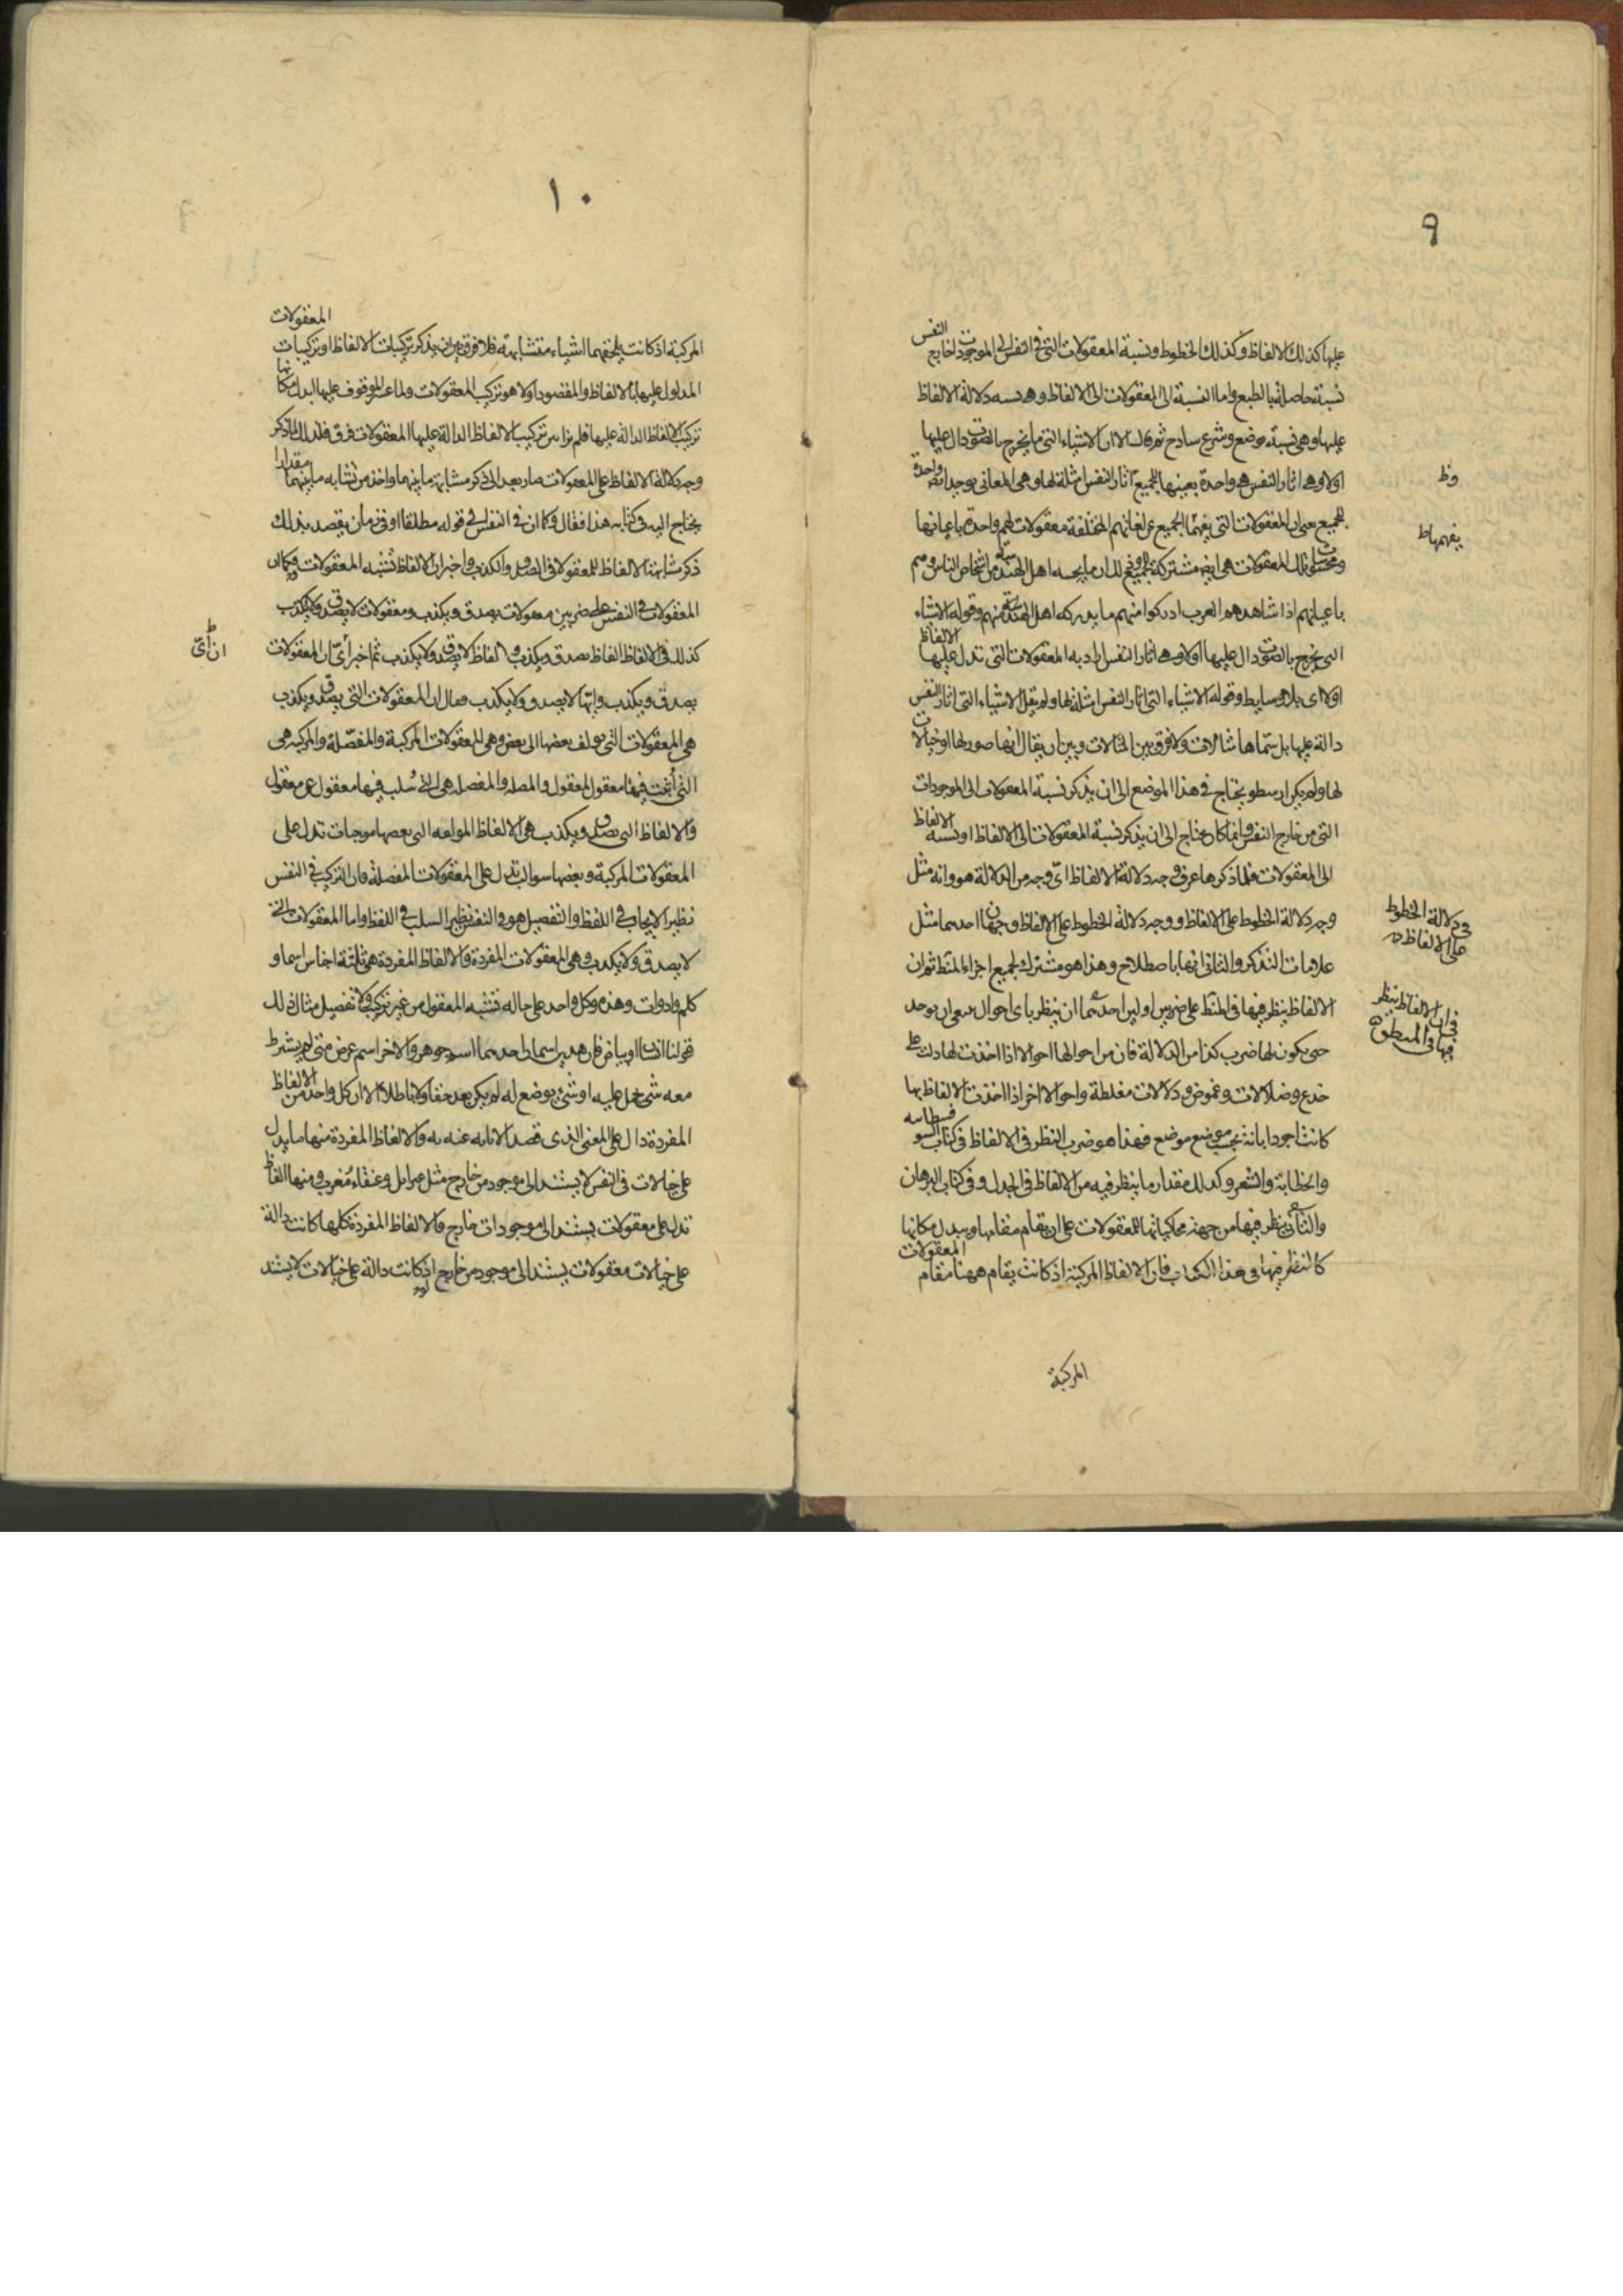 ٩
عليها كذلك الالفاظ وكذلك الخطوط ونسبة المعقولات التى فى النفس الى الموجودات خارج النفس
نسبة حاصلة بالطبع واما النسبة الى المعقولات الى الالفاظ وهى نسبه دلالة الالفاظ
عليها وهى نسبة بوضع وشرع ساذج ثم قال الا ان الاشياء التى ما يخرج بالصوت دال عليها
اولا وهى اثار النفس هى واحدة بعينها للجميع اثار النفس امثلة لها وهى المعانى توجد واحدة
للجميع يعنى ان المعقولات التى يفهمها الجميع عن لغاتهم المختلفة معقولات لهم واحدة باعيانها
ومحسوسات تلك المعقولات هى ايضا مشتركة للجميع فى ان ما يحسه اهل الهند من اشخاص الناس وهم
باعيانهم اذا شاهدهم العرب ادركوا منهم ما يدركه اهل الهند منهم وقوله الاشياء
التى يخرج بالصوت دال عليها اولا وهى اثار النفس اراد به المعقولات التى تدل عليها الالفاظ
اولا اى بلا وسايط وقوله الاشياء التى اثار النفس امثلة لها ولم يقل الاشياء التى اثار النفس
دالة عليها بل سماها مثالات ولا فرق بين المثالات وبين ان يقال انها صور لها او خيالات
لها ولم يكن ارسطو يحتاج فى هذا الموضع الى ان يذكر نسبة المعقولات الى الموجودات
التى من خارج النفس وانما كان يحتاج الى ان يذكر نسبة المعقولات الى الالفاظ او نسبه الالفاظ
الى المعقولات فلما ذكرها عرف وجه دلالة الالفاظ اى وجه من الدلالة هو وانه مثل
وجه دلالة الخطوط على الالفاظ ووجه دلالة الخطوط على الالفاظ وجهان احدهما مثل
علامات التذكر والثانى انها باصطلاح وهذا هو مشترك لجميع اجزاء المنطق ثم ان
الالفاظ ينظر فيها فى المنطق على ضربين اولين احدهما ان ينظر باى احوال ينبغى ان توجد
حتى يكون لها ضرب كذا من الدلالة فان من احوالها احوالا اذا اخذت لها دلت على
خدع وضلالات وغموض ودلالات مغلطة واحوالا اخر اذا اخذت الالفاظ بها
كانت اجود ابانة بحسب موضع موضع فهذا هو ضرب النظر فى الالفاظ فى كتاب السوفسطائيه
والخطابة والشعر وكذلك مقدار ما ينظر فيه من الالفاظ فى الجدل وفى كتاب البرهان
والثانى ينظر فيها من جهة محاكياتها للمعقولات على ان تقام مقامها وببدل مكانها
كالنظر فيها فى هذا الكتاب فان الالفاظ المركبة اذ كانت يقام ههنا مقام المعقولات
المركبة
يفهمها ط
فى دلالة الخطوط
على الالفاظ
فى ان الالفاظ ينظر
فيها فى المنطق
١٠
المركبة اذ كانت يلحقهما اشياء متشابهة فلا فرق بين ان يذكر تركيبات الالفاظ او تركيبات المعقولات
المدلول عليها بالالفاظ والمقصود اولا هو تركيب المعقولات ولما عسر الوقوف عليها ابدل مكانها
تركيب الالفاظ الدالة عليها فلم نر بين تركيب الالفاظ الدالة عليها المعقولات فرق فلذلك لما ذكر
وجه دلالة الالفاظ على المعقولات صار بعد الى ذكر مشابهة ما بينهما واخذ من تشابه ما بينهما مقدار ما
يحتاج اليه فى كتابه هذا فقال وكما ان فى النفس الى قوله مطلقا او فى زمان يقصد بذلك
ذكر مشابهة الالفاظ للمعقولات فى الصدق والكذب واخبر ان الالفاظ تشبه المعقولات وكما ان
المعقولات فى النفس على ضربين معقولات يصدق ويكذب ومعقولات لا يصدق ولا يكذب
كذلك فى الالفاظ الفاظ يصدق ويكذب والفاظ لا يصدق ولا يكذب ثم اخبر أىّ المعقولات
يصدق ويكذب وايّها لا يصدق ولا يكذب فقال ان المعقولات التى يصدق ويكذب
هى المعقولات التى يولف بعضها الى بعض وهى المعقولات المركبة والمفصّلة والمركبة هى
التى أثبت فيها معقول لمعقول والمفصله هى التى سُلب فيها معقول عن معقول
والالفاظ التى يصدق ويكذب هى الالفاظ المولفه التى بعضها موجبات تدل على
المعقولات المركبة وبعضها سوالب تدل على المعقولات المفصلة فان التركيب فى النفس
نظير الايجاب فى اللفظ والتفصيل هو فى النفس نظير السلب فى اللفظ واما المعقولات التى
لا يصدق ولا يكذب وهى المعقولات المفردة والالفاظ المفردة هى ثلثة اجناس اسما و
كلم وادوات وهذه وكل واحد على حاله تشبه المعقول من غير تركيب ولا تفصيل مثال ذلك
قولنا انسان او بياض فان هذين اسمان احدهما اسم جوهر والاخر اسم عرض متى لم يشرط
معه شى يحمل عليه او شى يوضع له لم يكن بعد حقا ولا باطلا الا ان كل واحد من الالفاظ
المفردة دال على المعنى الذى قصد الابانه عنه به والالفاظ المفردة منها ما يدل
على خيالات فى النفس لا يستند الى موجود من خارج مثل عنزايل وعنقاء مُغرب ومنها الفاظ
تدل على معقولات يستند الى موجودات خارج والالفاظ المفردة كلها كانت دالة
على خيالات معقولات يستند الى موجود من خارج او كانت دالة على خيالات لا يستند
ان أىّ